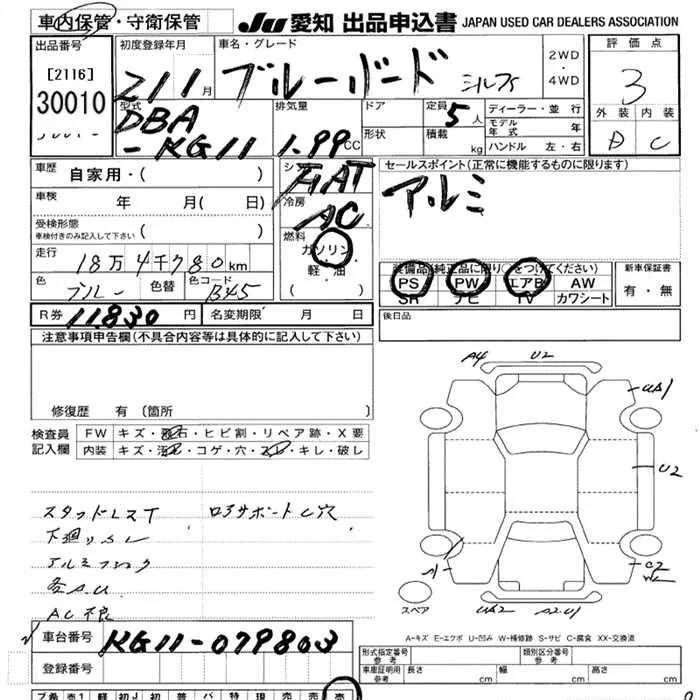 車内保管・守衛保管
JU 愛知 出品申込書 JAPAN USED CAR DEALERS ASSOCIATION
出品番号 [2116] 30010
初度登録年月 21 1 月
車名・グレード ブルーバード シルフィ
2WD ・ 4WD
評価点 3
外装 内装
D C
型式 DBA - KG11
排気量 1.99 CC
ドア 定員 5 人
形状 積載 kg
ディーラー・並行
モデル年式 年
ハンドル 左・右
車歴 自家用・( )
車検 年 月( 日)
受検形態 車検付きのみ記入して下さい ( )
走行 18万4千780 km
色 ブルー 色替 色コード B45
シフト FIAT
冷房 AC
燃料 ガソリン ・ 軽・油 ( )
セールスポイント(正常に機能するものに限ります)
アルミ
装備品(純正品に限り○をつけてください)
PS PW エアB AW
SR ナビ TV カワシート
新車保証書 有・無
R券 11.830 円 名変期限 月 日
後日品
注意事項申告欄(不具合内容等は具体的に記入して下さい)
修復歴 有 (箇所 )
検査員記入欄
FW キズ・飛石・ヒビ割・リペア跡・X要
内装 キズ・汚レ・コゲ・穴・スレ・キレ・破レ
スタッドレスT ロアサポートC穴
下廻りSL
各A.U
AC不良
A4 U2
U2
A
C2
スペア
A2.U1
A-キズ E-エクボ U-凹み W-補修跡 S-サビ C-腐食 XX-交換済
車台番号 KG11-079803
登録番号
形式指定番号 参考 類別区分番号 参考
車庫証明用 参考 長さ cm 幅 cm 高さ cm